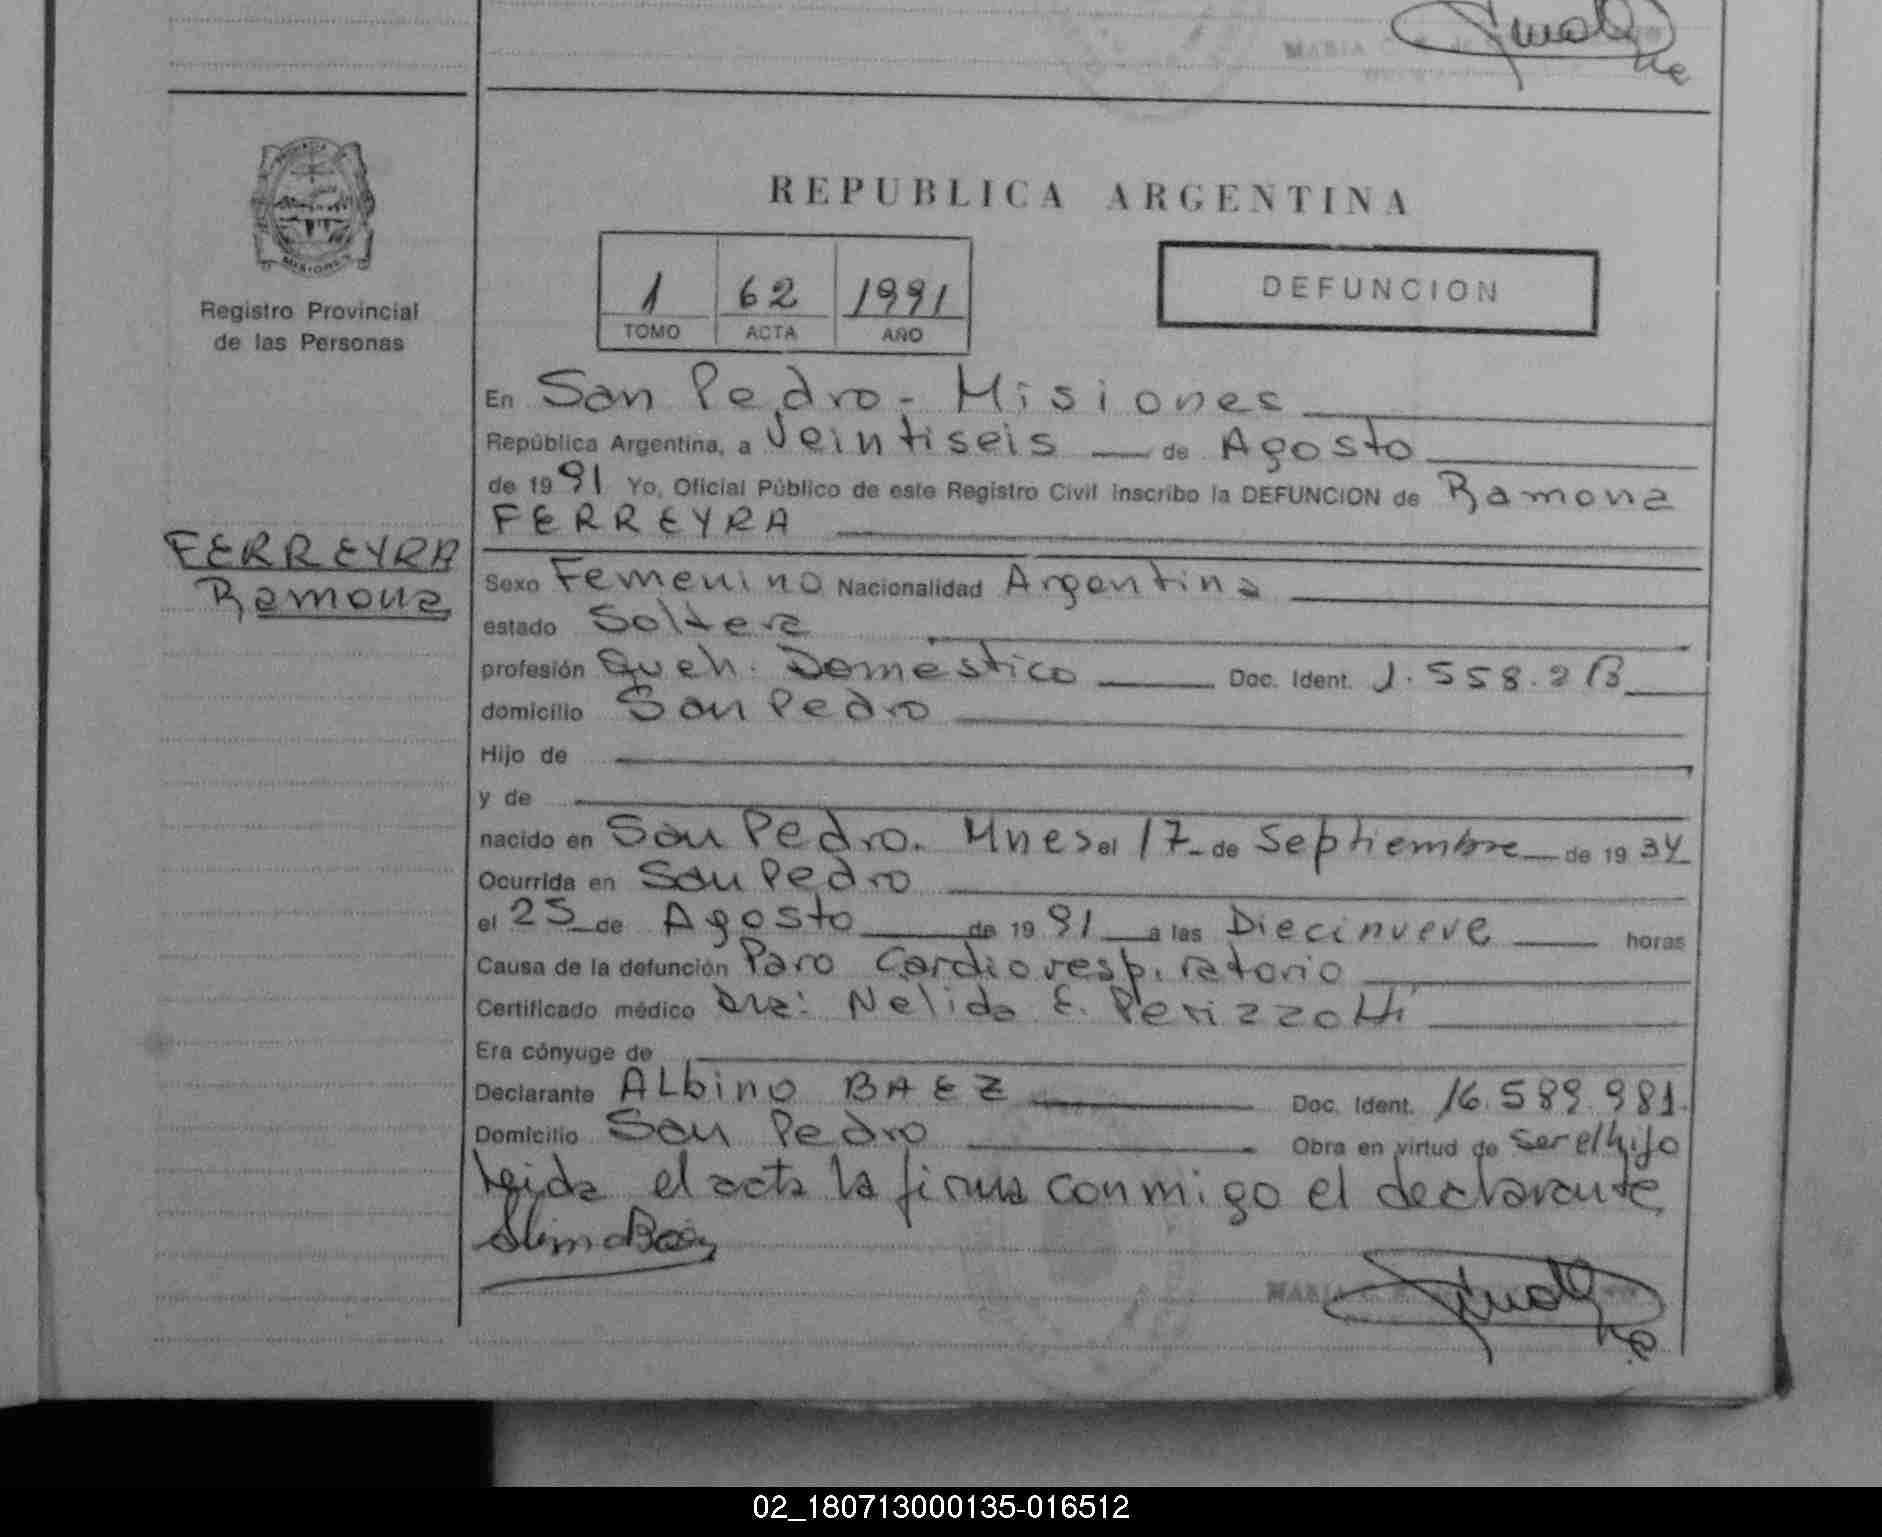 REPUBLICA ARGENTINA
PROVINCIA
MISIONES
Registro Provincial
de las Personas
1 62 1991
TOMO ACTA AÑO
DEFUNCION
En San Pedro - Misiones
República Argentina, a Veintiseis de Agosto
de 1991 Yo, Oficial Público de este Registro Civil inscribo la DEFUNCION de Ramona
FERREYRA
FERREYRA
Ramona
Sexo Femenino Nacionalidad Argentina
estado Soltera
profesión Queh. Domestico Doc. Ident.
domicilio San Pedro
Hijo de
y de
nacido en San Pedro. Mnes el 17 de Septiembre de 1934
Ocurrida en San Pedro
el 25 de Agosto de 1991 a las Diecinueve horas
Causa de la defunción Paro Cardiorespiratorio
Certificado médico Dra: Nelida E. Perizzotti
Era cónyuge de
Declarante ALbino BAEZ Doc. Ident. 16.589.981.
Domicilio San Pedro Obra en virtud de ser el hijo
leida el acta la firma conmigo el declarante
MARIA
02_180713000135-016512